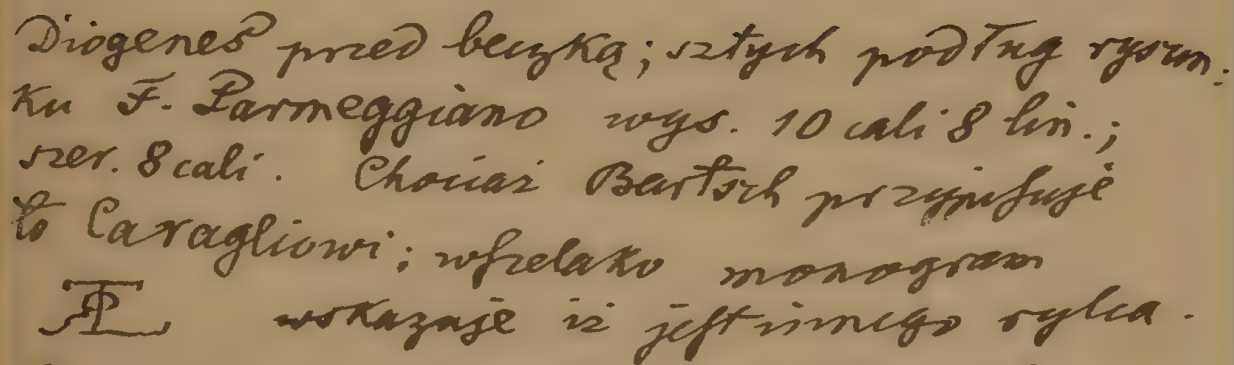 Diogenes przed beczką; sztych podług rysun:
ku F. Parmeggiano wys. 10 cali 8 lin.;
szer. 8 cali. Chociaż Bartsch przypisuje
to Caragliowi; wszelako monogram
wskazuje iż jest innego rylca.